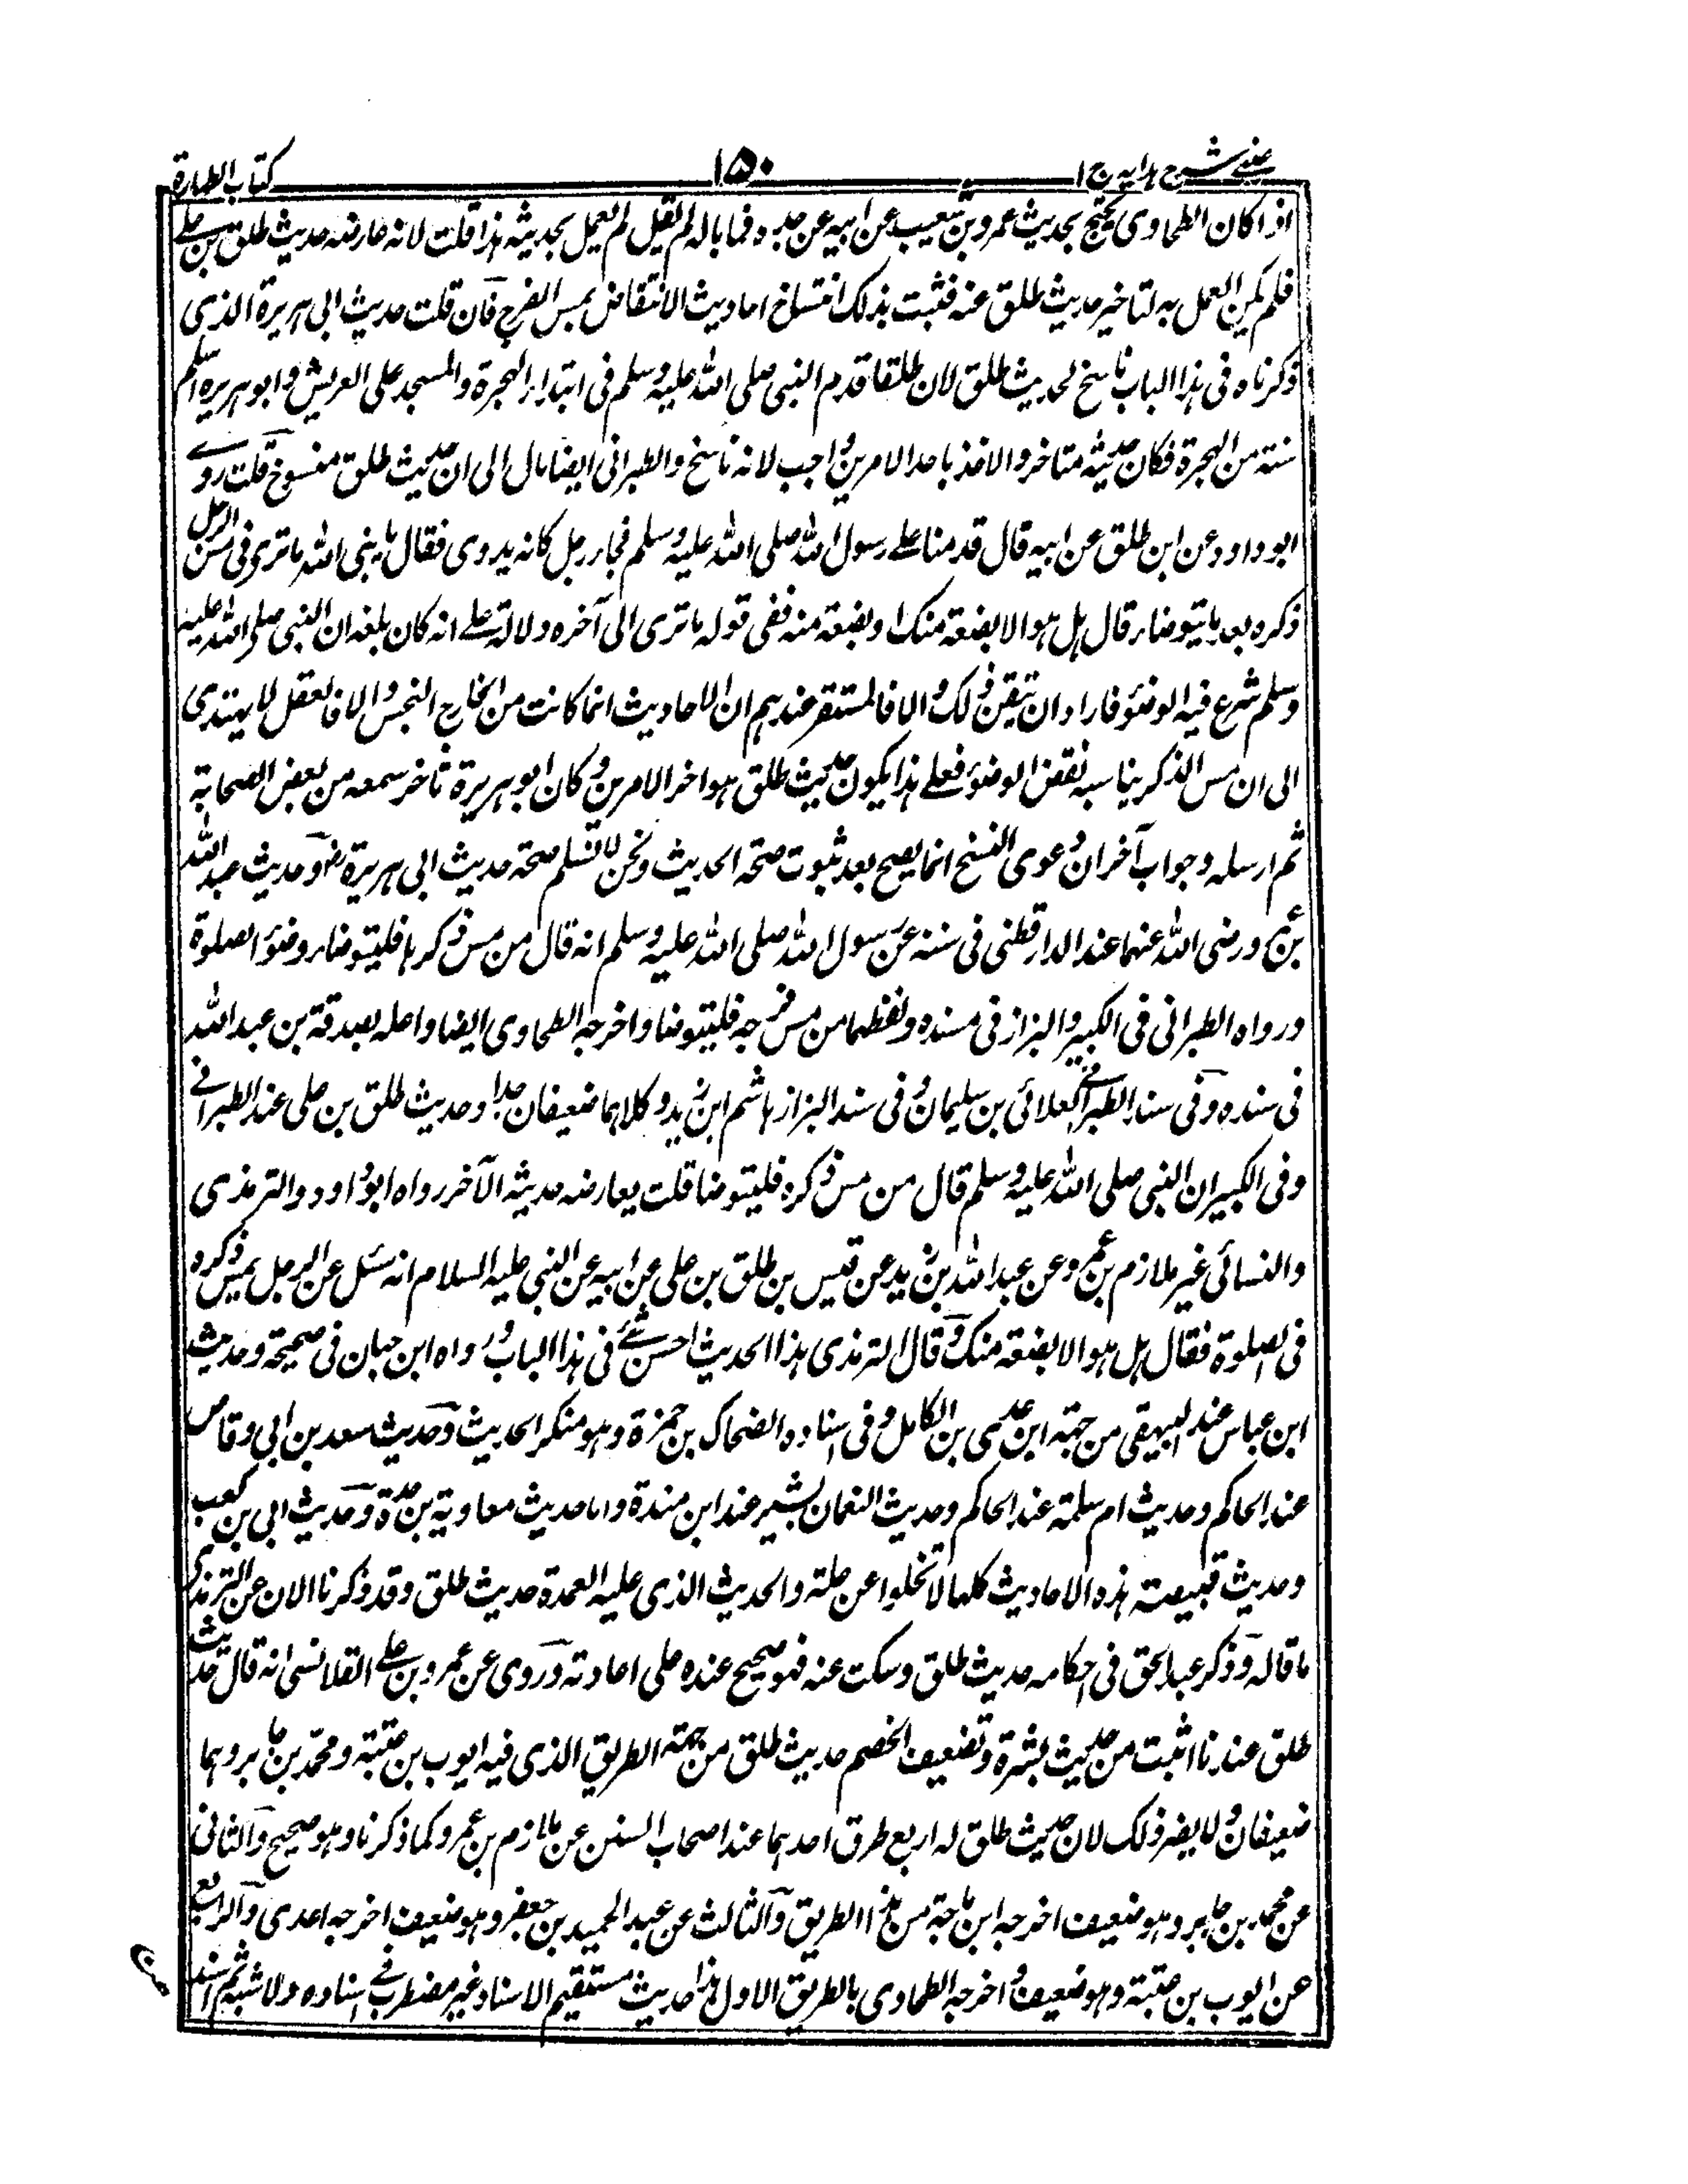 عینے شرح ہدایہ ج۱ ۱۵۰ کتاب الطہارۃ
اذا کان الطحاوی یحتج بحدیث عمرو بن شعیب عن ابیہ عن جدہ فما بالہ لم یقل لم یعمل بحدیثہ ہذا قلت لانہ عارضہ حدیث طلق بن علے
فلم یکن العمل بہ لتاخیر حدیث طلق عنہ فثبت بذلک انتساخ احادیث الانتقاض بمس الفرج فان قلت حدیث ابی ہریرۃ الذی
ذکرناہ فی ہذا الباب ناسخ لحدیث طلق لان طلقا قدم النبی صلی اللہ علیہ وسلم فی ابتداء الہجرۃ والمسجد علی العریش وابو ہریرہ اسلم
سنتہ من الہجرۃ فکان حدیثہ متاخر والاخذ باحد الامرین واجب لانہ ناسخ والطبرانی ایضا مال الی ان حدیث طلق منسوخ قلت روے
ابو داود عن ابن طلق عن ابیہ قال قدمنا علے رسول اللہ صلی اللہ علیہ وسلم فجاء رجل کانہ بدوی فقال یا نبی اللہ ما تری فی مس الرجل
ذکرہ بعد ما یتوضاء قال ہل ہو الا بضعۃ منک او بضعۃ منہ ففی قولہ ما تری الی آخرہ دلالۃ علے انہ کان بلغہ ان النبی صلی اللہ علیہ
وسلم شرع فیہ الوضوء فاراد ان تیقن ذلک والا فالمستقر عندہم ان الاحادیث انما کانت من الخارج النجس والا فالعقل لا یہتدی
الی ان مس الذکر یناسبہ نقض الوضوء فعلے ہذا یکون حدیث طلق ہو اخر الامرین وکان ابو ہریرۃ تاخر سمعہ من بعض الصحابۃ
ثم ارسلہ وجواب آخر ان دعوی النسخ انما یصح بعد ثبوت صحۃ الحدیث ونحن لا نسلم صحۃ حدیث ابی ہریرۃ رضہ وحدیث عبد اللہ
بن عمرو رضی اللہ عنہما عند الدارقطنی فی سننہ عن رسول اللہ صلی اللہ علیہ وسلم انہ قال من مس ذکرہا فلیتوضاء وضوء الصلوۃ
ورواہ الطبرانی فی الکبیر والبزاز فی مسندہ ولفظہما من مس فرجہ فلیتوضا واخرجہ الطحاوی ایضا واعلہ بصدقۃ بن عبد اللہ
فی سندہ وفی سند الطبرانے العلائی بن سلیمان وفی سند البزاز ہاشم ابن زید وکلاہما ضعیفان جدا وحدیث طلق بن علی عند الطبرانے
وفی الکبیر ان النبی صلی اللہ علیہ وسلم قال من مس ذکرہ فلیتوضا قلت یعارضہ حدیثہ الآخر رواہ ابو داود والترمذی
والنسائی غیر ملازم بن عمرو عن عبد اللہ بن زید عن قیس بن طلق بن علی عن ابیہ عن النبی علیہ السلام انہ سئل عن الرجل یمس ذکرہ
فی الصلوۃ فقال ہل ہو الا بضعۃ منک وقال الترمذی ہذا الحدیث احسن شئے فی ہذا الباب ورواہ ابن حبان فی صحیحہ وحدیث
ابن عباس عند البیہقی من جہتہ ابن عدی بن الکامل وفی اسنادہ الضحاک بن حمزۃ وہو منکر الحدیث وحدیث سعد بن ابی وقاص
عند الحاکم وحدیث ام سلمۃ عند الحاکم وحدیث النعمان بشیر عند ابن مندۃ واما حدیث معاویۃ بن حیدۃ وحدیث ابی بن کعب
وحدیث قبیصۃ ہذہ الاحادیث کلہا لا تخلوا عن علۃ والحدیث الذی علیہ العمدۃ حدیث طلق وقد ذکرنا الان عن الترمذی
ما قالہ وذکر عبد الحق فی احکامہ حدیث طلق وسکت عنہ فہو صحیح عندہ علی عادتہ وروی عن عمرو بن علے القلانسی انہ قال حدیث
طلق عندنا اثبت من حدیث بشرۃ وتضعیف الخصم حدیث طلق من جہتہ الطریق الذی فیہ ایوب بن عتبۃ ومحمد بن جابر وہما
ضعیفان ولا یضر ذلک لان حدیث طلق لہ اربع طرق احدہما عند اصحاب السنن عن ملازم بن عمرو کما ذکرنا وہو صحیح والثانی
عن محمد بن جابر وہو ضعیف اخرجہ ابن ماجۃ من ہذا الطریق والثالث عن عبد الحمید بن جعفر وہو ضعیف اخرجہ اعدی والرابع
عن ایوب بن عتبۃ وہو ضعیف واخرجہ الطحاوی بالطریق الاول ہذا حدیث مستقیم الاسناد غیر مضطرب فے اسنادہ ولا شبہ ثم اسند